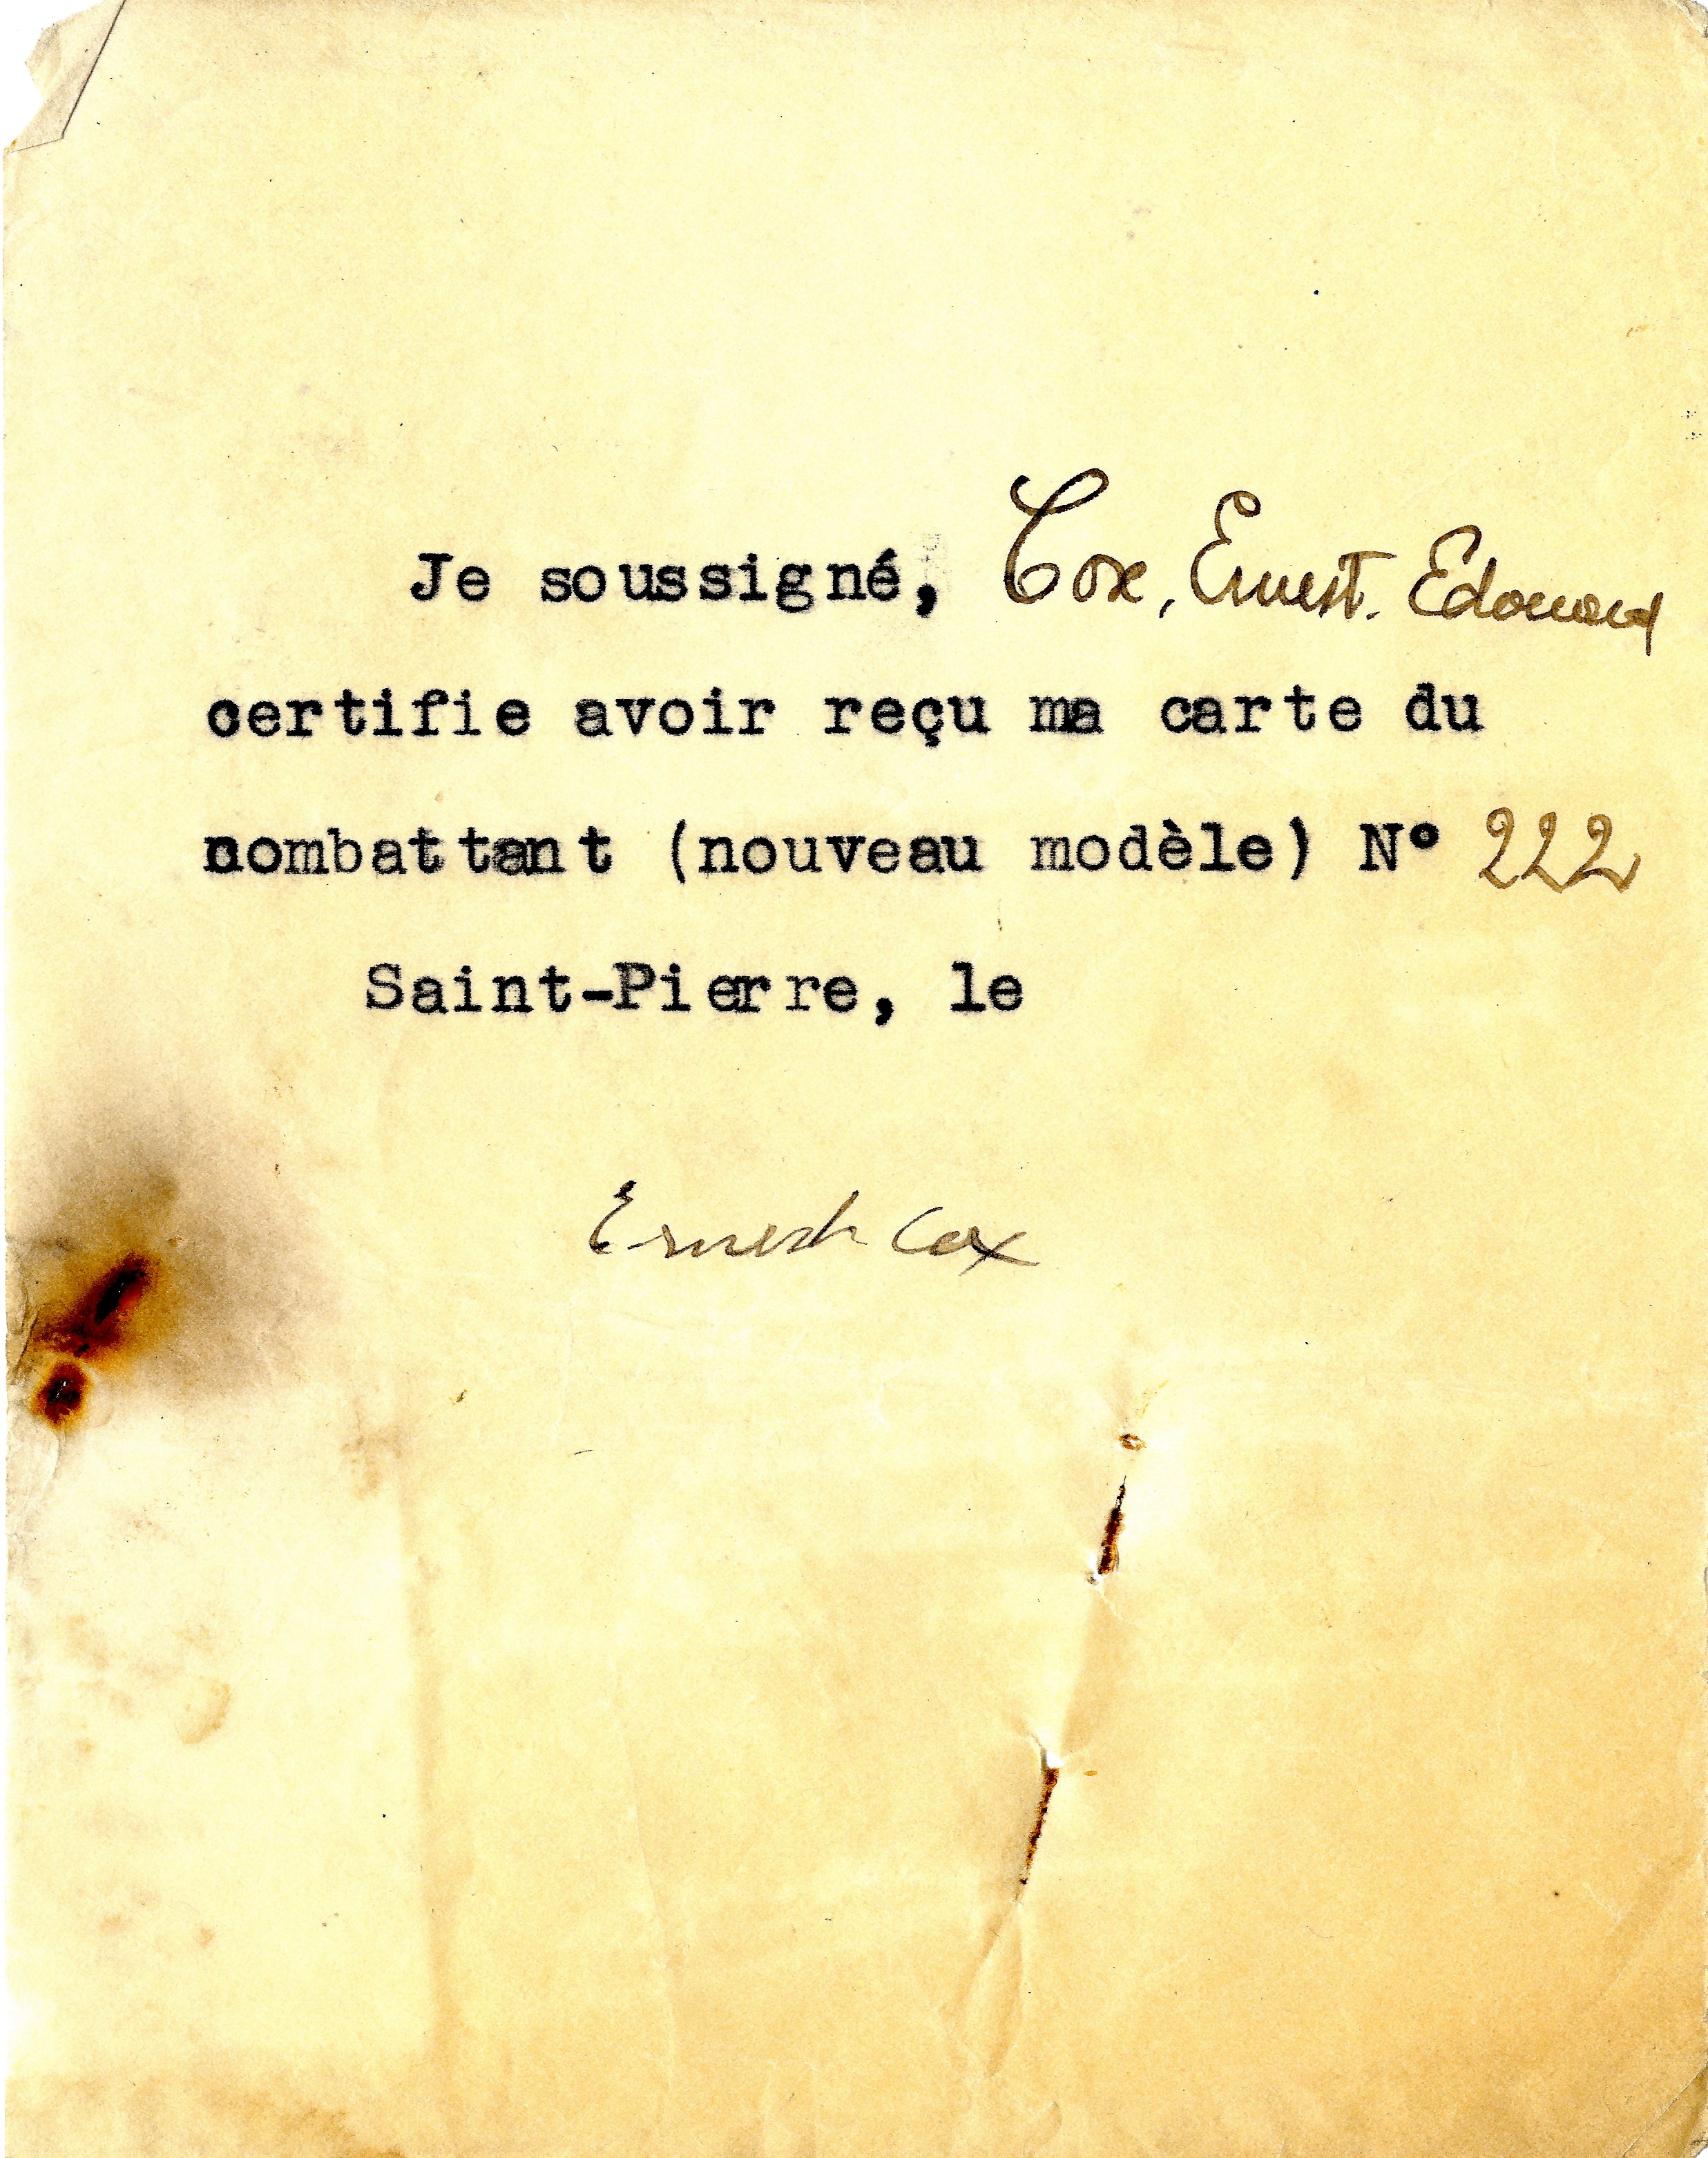 Je soussigné, Cox, Ernest. Edouard
certifie avoir reçu ma carte du
combattant (nouveau modèle) N° 222
Saint-Pierre, le
Ernest Cox